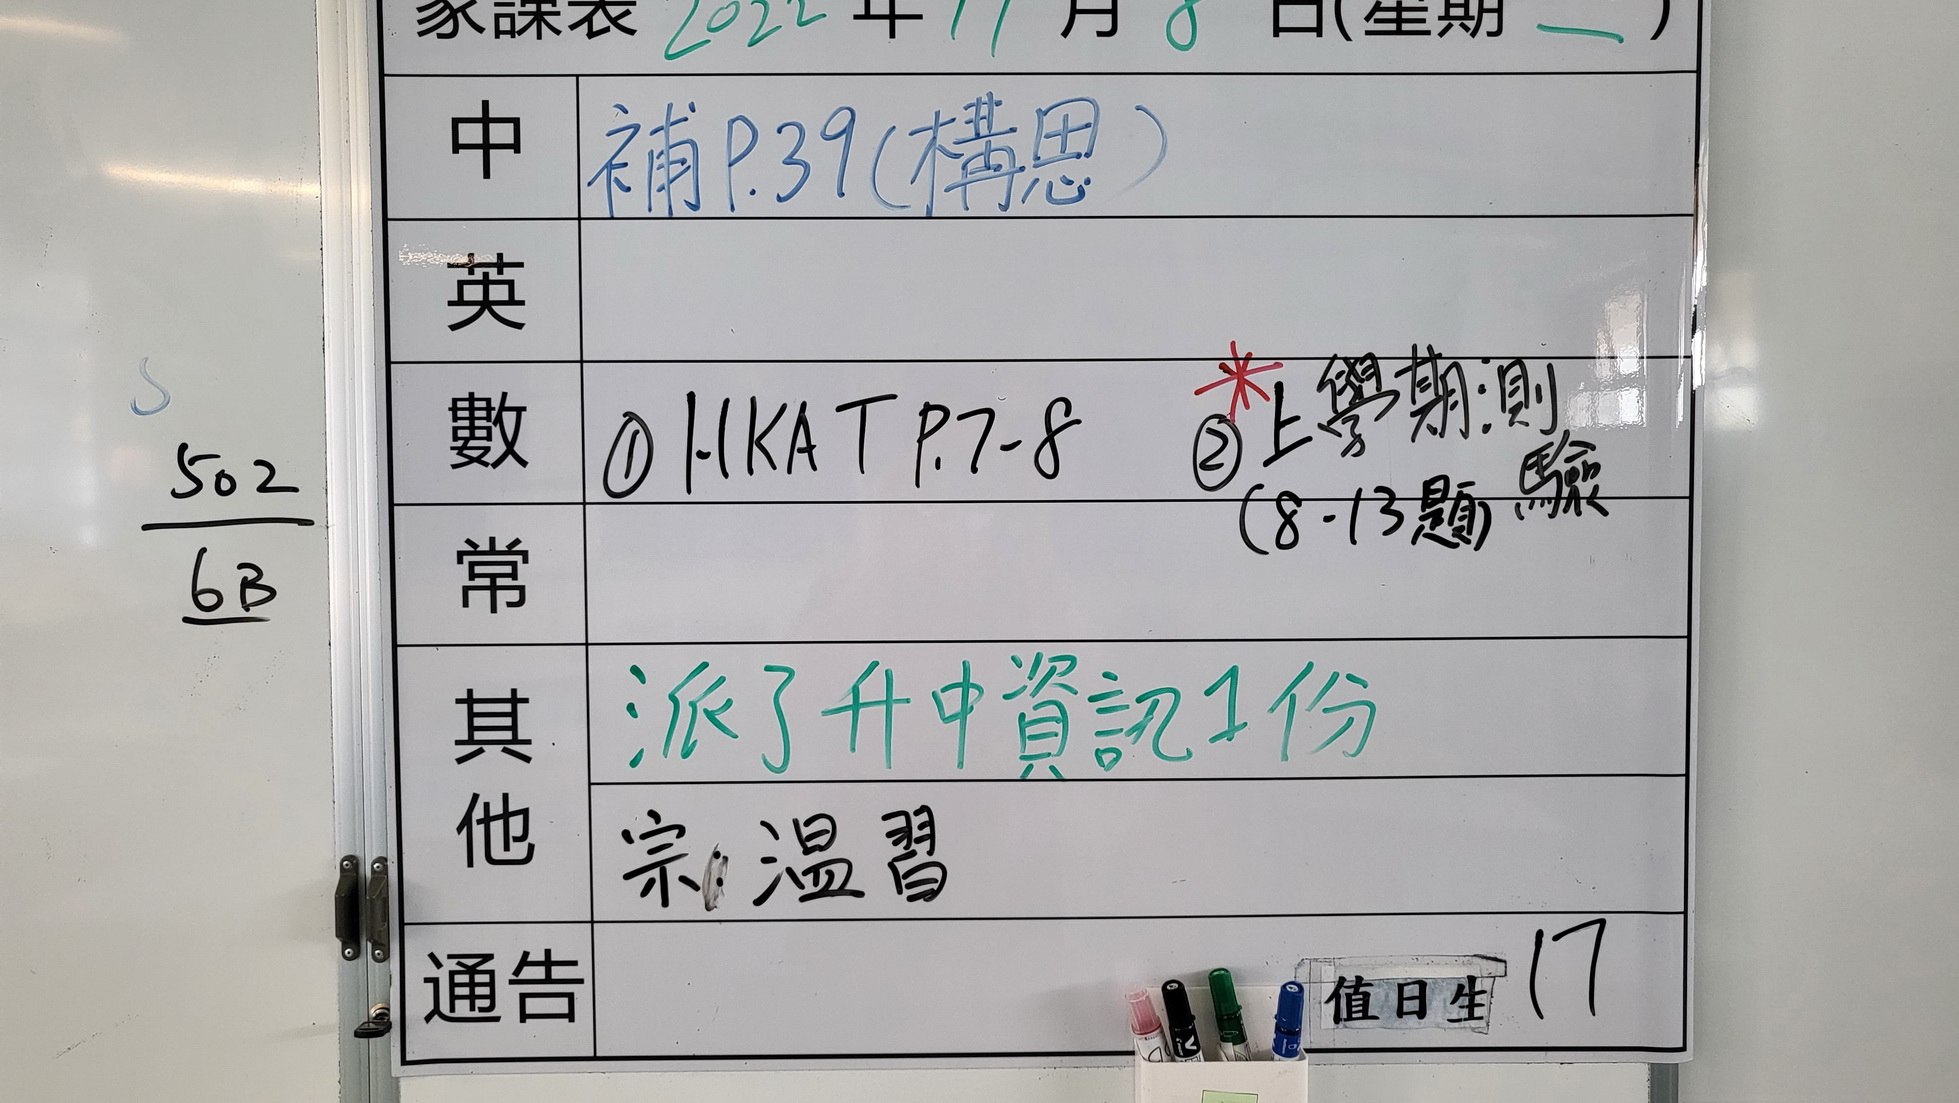 家課表 2022 年 11 月 8 日(星期 二)
中 補P.39(構思)
英
數 ① HKAT P.7-8 *② 上學期測驗
(8-13題)
常
502
6B
其他 派了升中資訊1份
宗:温習
通告
值日生 17